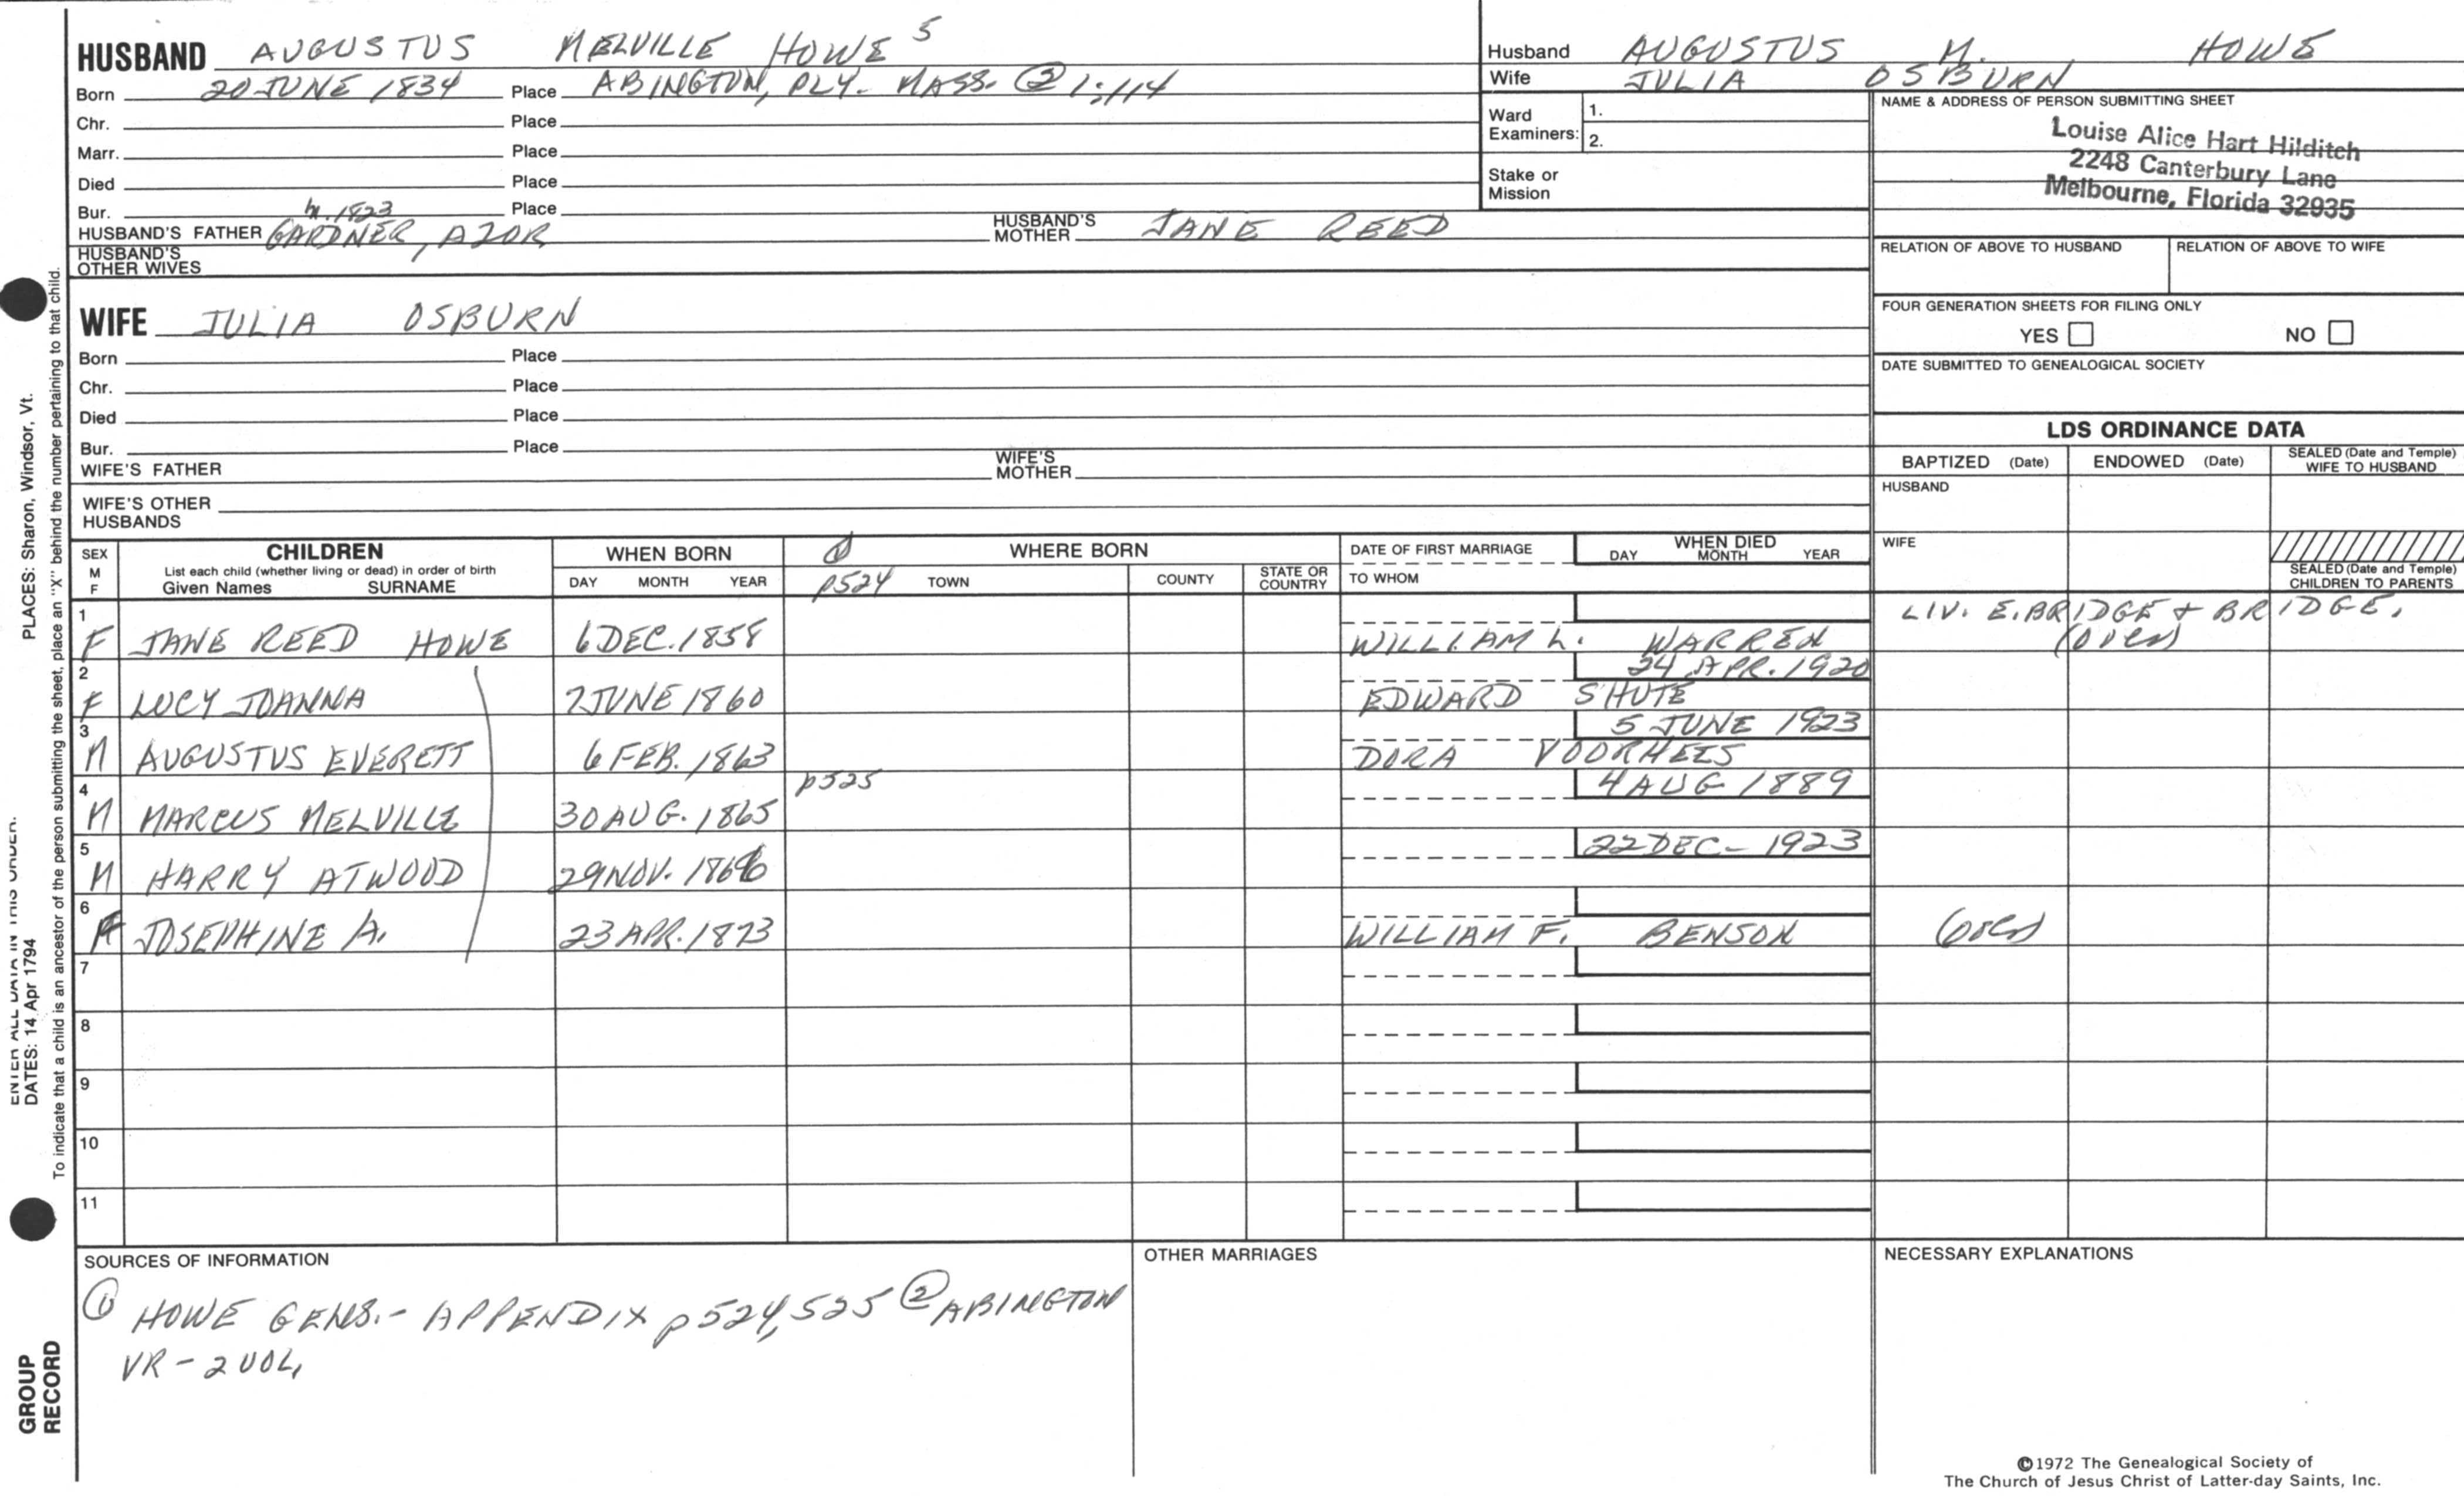 HUSBAND AUGUSTUS MELVILLE HOWE 5
Born 20 JUNE 1834 Place ABINGTON, PLY. MASS. ② 1:114
Chr. Place
Marr. Place
Died Place
Bur. Place
m. 1823
HUSBAND'S FATHER GARDNER, AZOR HUSBAND'S MOTHER JANE REED
HUSBAND'S OTHER WIVES
WIFE JULIA OSBURN
Born Place
Chr. Place
Died Place
Bur. Place
WIFE'S FATHER WIFE'S MOTHER
WIFE'S OTHER HUSBANDS
Husband AUGUSTUS M. HOWE
Wife JULIA OSBURN
Ward Examiners: 1.
2.
Stake or Mission
NAME & ADDRESS OF PERSON SUBMITTING SHEET
Louise Alice Hart Hilditch
2248 Canterbury Lane
Melbourne, Florida 32935
RELATION OF ABOVE TO HUSBAND RELATION OF ABOVE TO WIFE
FOUR GENERATION SHEETS FOR FILING ONLY
YES NO
DATE SUBMITTED TO GENEALOGICAL SOCIETY
LDS ORDINANCE DATA
BAPTIZED (Date) ENDOWED (Date) SEALED (Date and Temple) WIFE TO HUSBAND
HUSBAND
WIFE
SEALED (Date and Temple) CHILDREN TO PARENTS
SEX M F
CHILDREN
List each child (whether living or dead) in order of birth
Given Names SURNAME
WHEN BORN
DAY MONTH YEAR
① p524
WHERE BORN
TOWN COUNTY STATE OR COUNTRY
DATE OF FIRST MARRIAGE
TO WHOM
WHEN DIED
DAY MONTH YEAR
1 F JANE REED HOWE 6 DEC. 1858 WILLIAM L. WARREN LIV. E. BRIDGE + BRIDGE. (over)
2 F LUCY JOANNA 7 JUNE 1860 24 APR. 1920 EDWARD SHUTE
3 M AUGUSTUS EVERETT 6 FEB. 1863 5 JUNE 1923 DORA VOORHEES
4 M MARCUS MELVILLE 30 AUG. 1865 p525 4 AUG 1889
5 M HARRY ATWOOD 29 NOV. 1866 22 DEC - 1923
6 F JOSEPHINE A. 23 APR. 1873 WILLIAM F. BENSON (over)
7
8
9
10
11
SOURCES OF INFORMATION
① HOWE GENS. - APPENDIX p524,525 ② ABINGTON
VR - 2 VOL.
OTHER MARRIAGES
NECESSARY EXPLANATIONS
©1972 The Genealogical Society of
The Church of Jesus Christ of Latter-day Saints, Inc.
PLACES: Sharon, Windsor, Vt.
ENTER ALL DATA IN THIS ORDER:
DATES: 14 Apr 1794
To indicate that a child is an ancestor of the person submitting the sheet, place an "X" behind the number pertaining to that child.
GROUP
RECORD